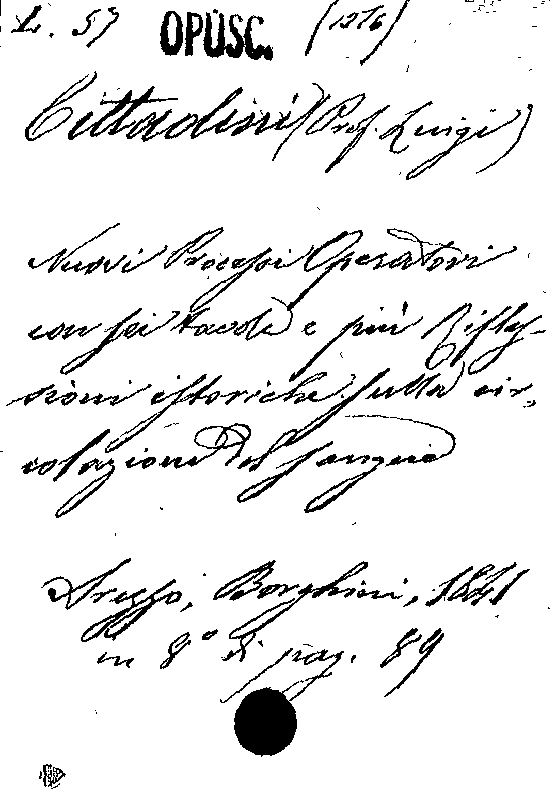 L. 57 OPUSC. (1216)
Cittadini (Prof. Luigi)
Nuovi Processi Operatori
con sei tavole e più Rifles-
sioni istoriche sulla cir-
colazione del sangue
Arezzo, Borghini, 1841
in 8° di pag. 89